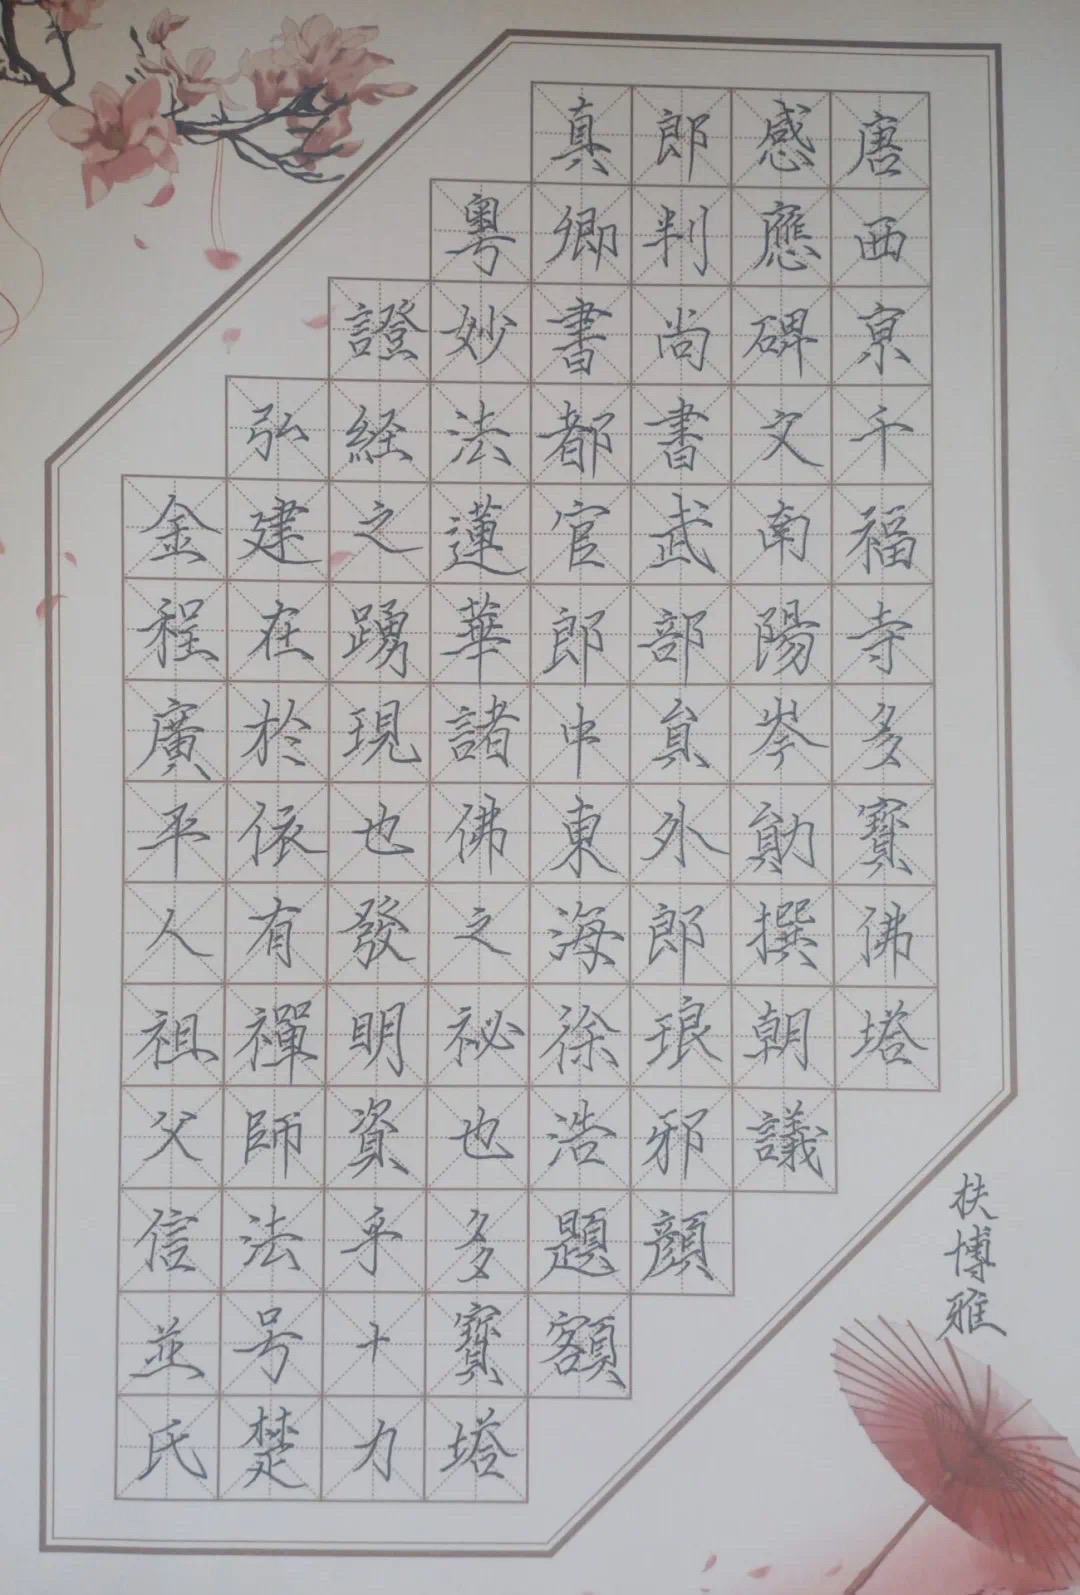 唐西京千福寺多寶佛塔
感應碑文南陽岑勛撰朝議
郎判尚書武部員外郎琅邪顏
真卿書都官郎中東海徐浩題額
粵妙法蓮華諸佛之祕也多寶塔
證経之踴現也發明資乎十力
弘建在於依有禪師法号楚
金程廣平人祖父信並氏
扶博雅